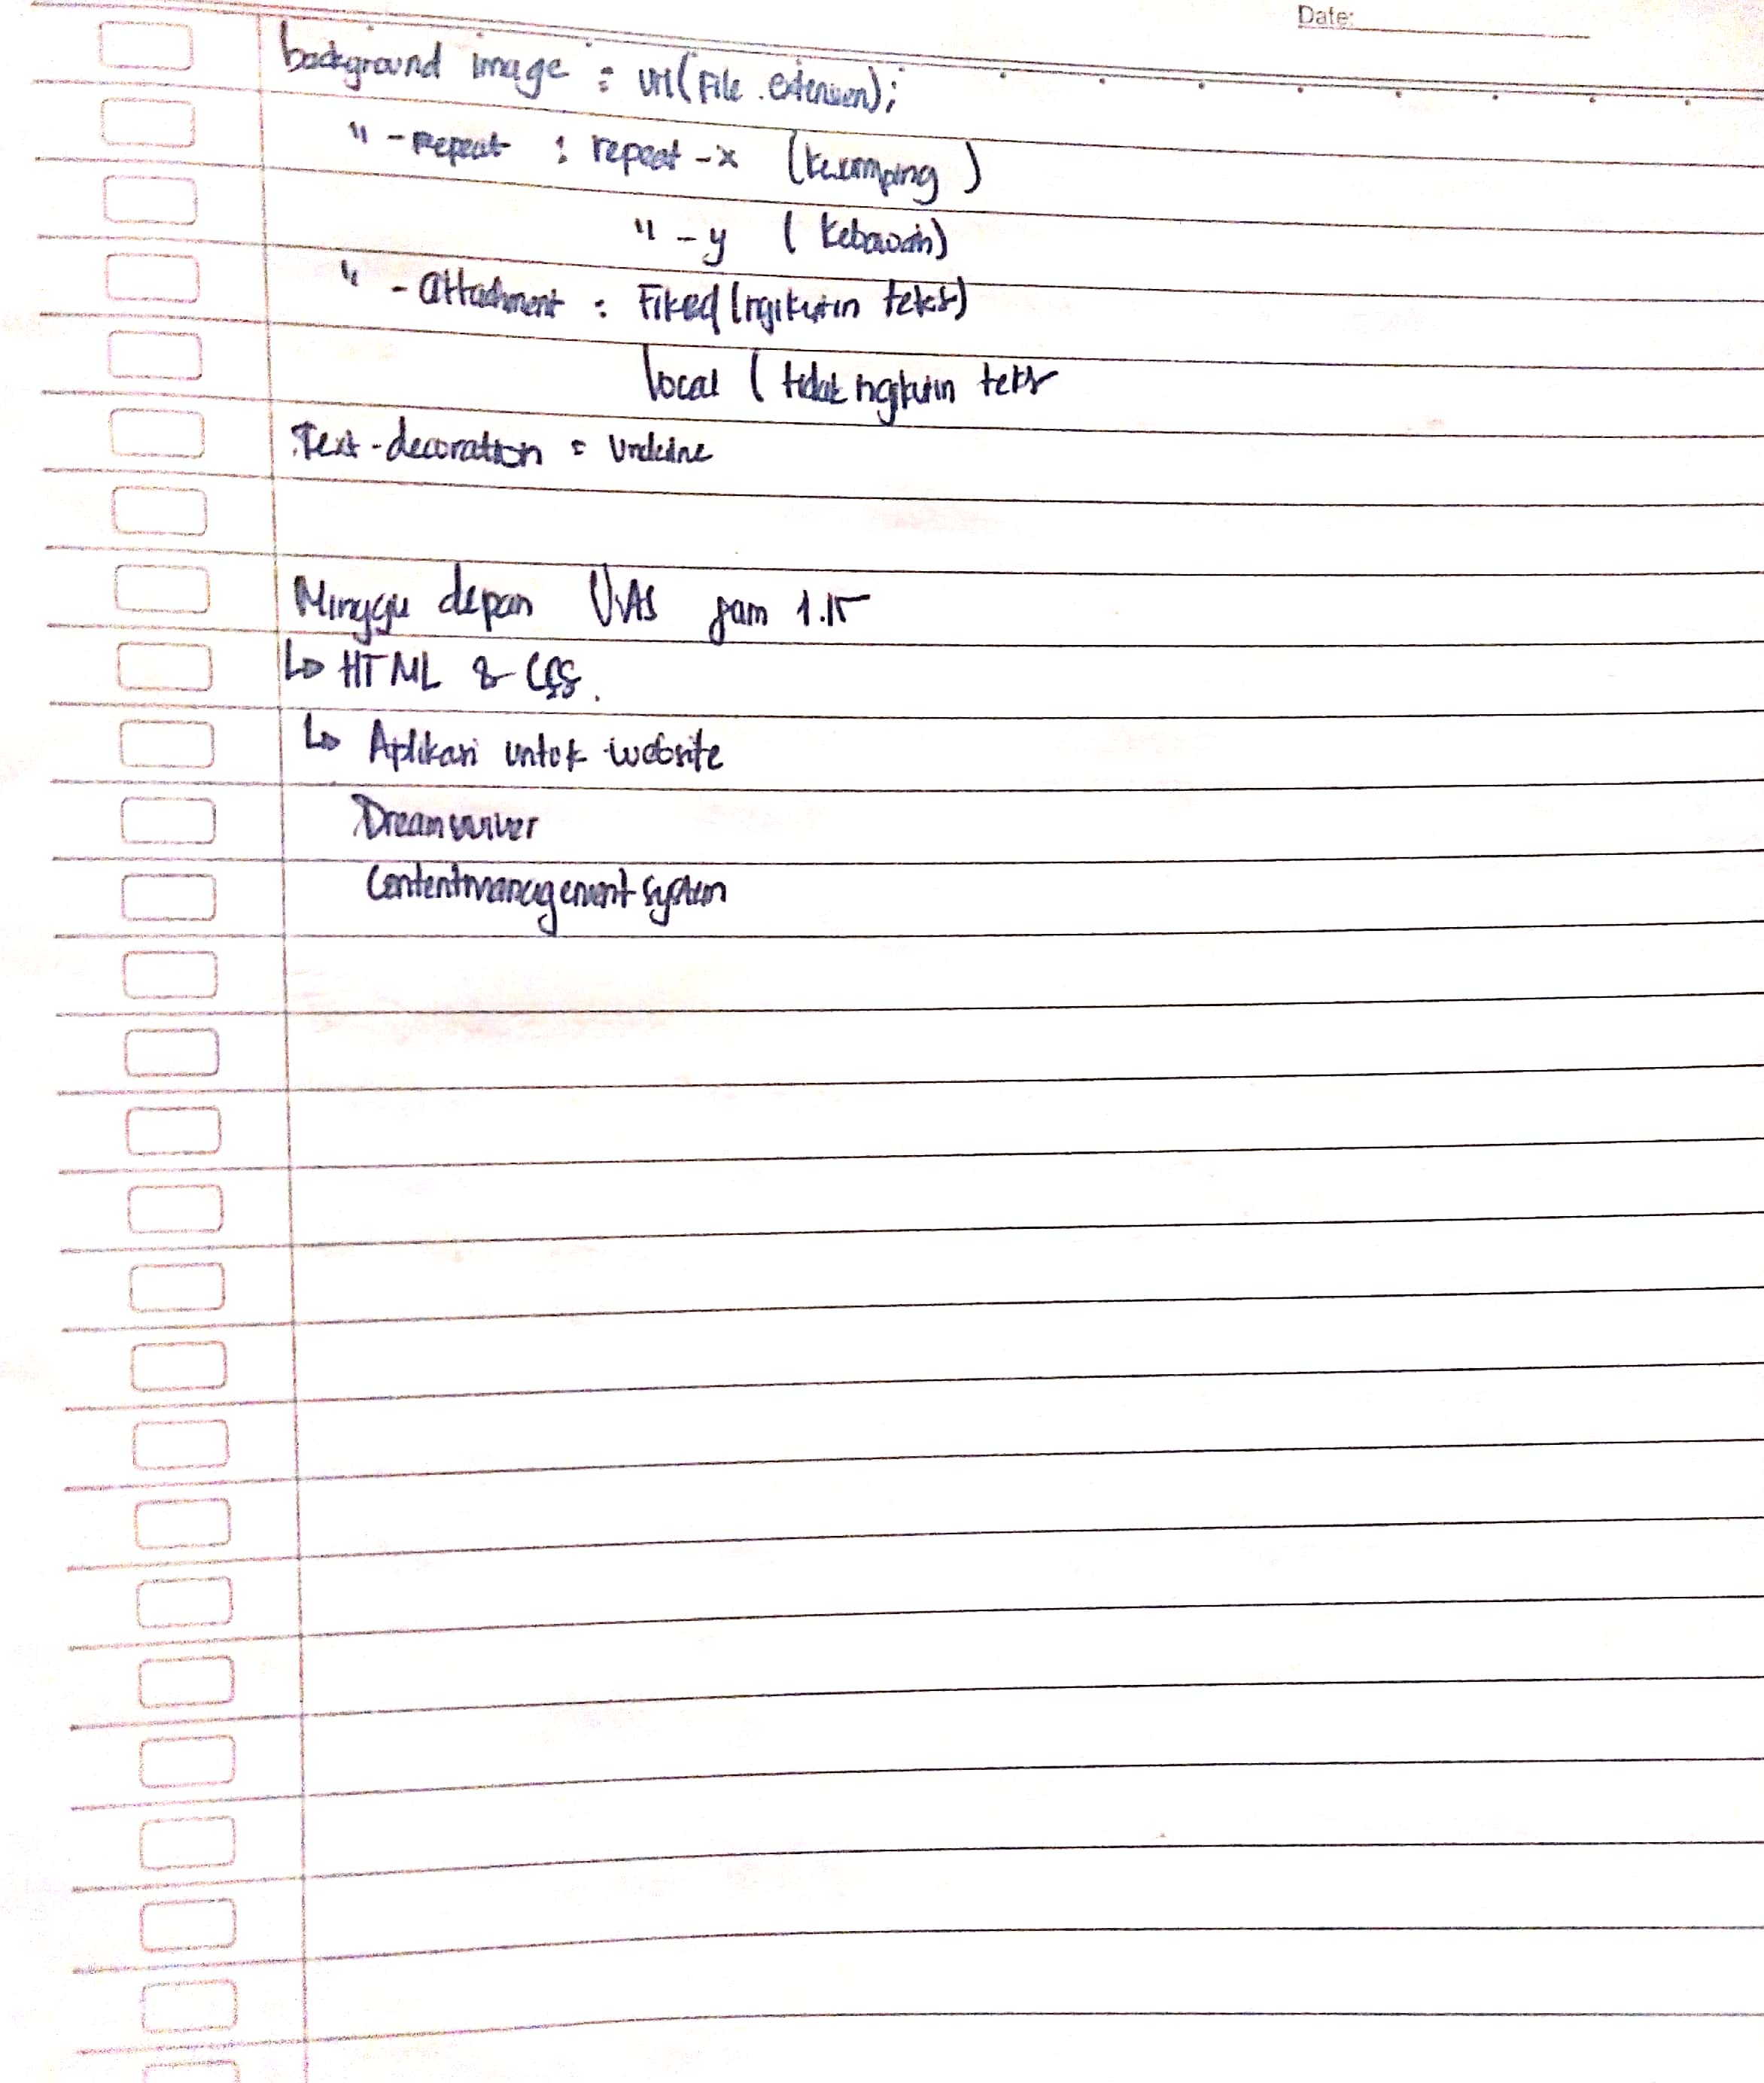 Date:
background image : url(File.extension);
" -repeat : repeat -x (kesamping)
" -y (kebawah)
" -attachment : Fixed (ngikutin teks)
local (tidak ngikutin teks
Text-decoration : Underline
Minggu depan UAS jam 1.15
↳ HTML & CSS.
↳ Aplikasi untuk website
Dreamwiver
Contentmanagement system